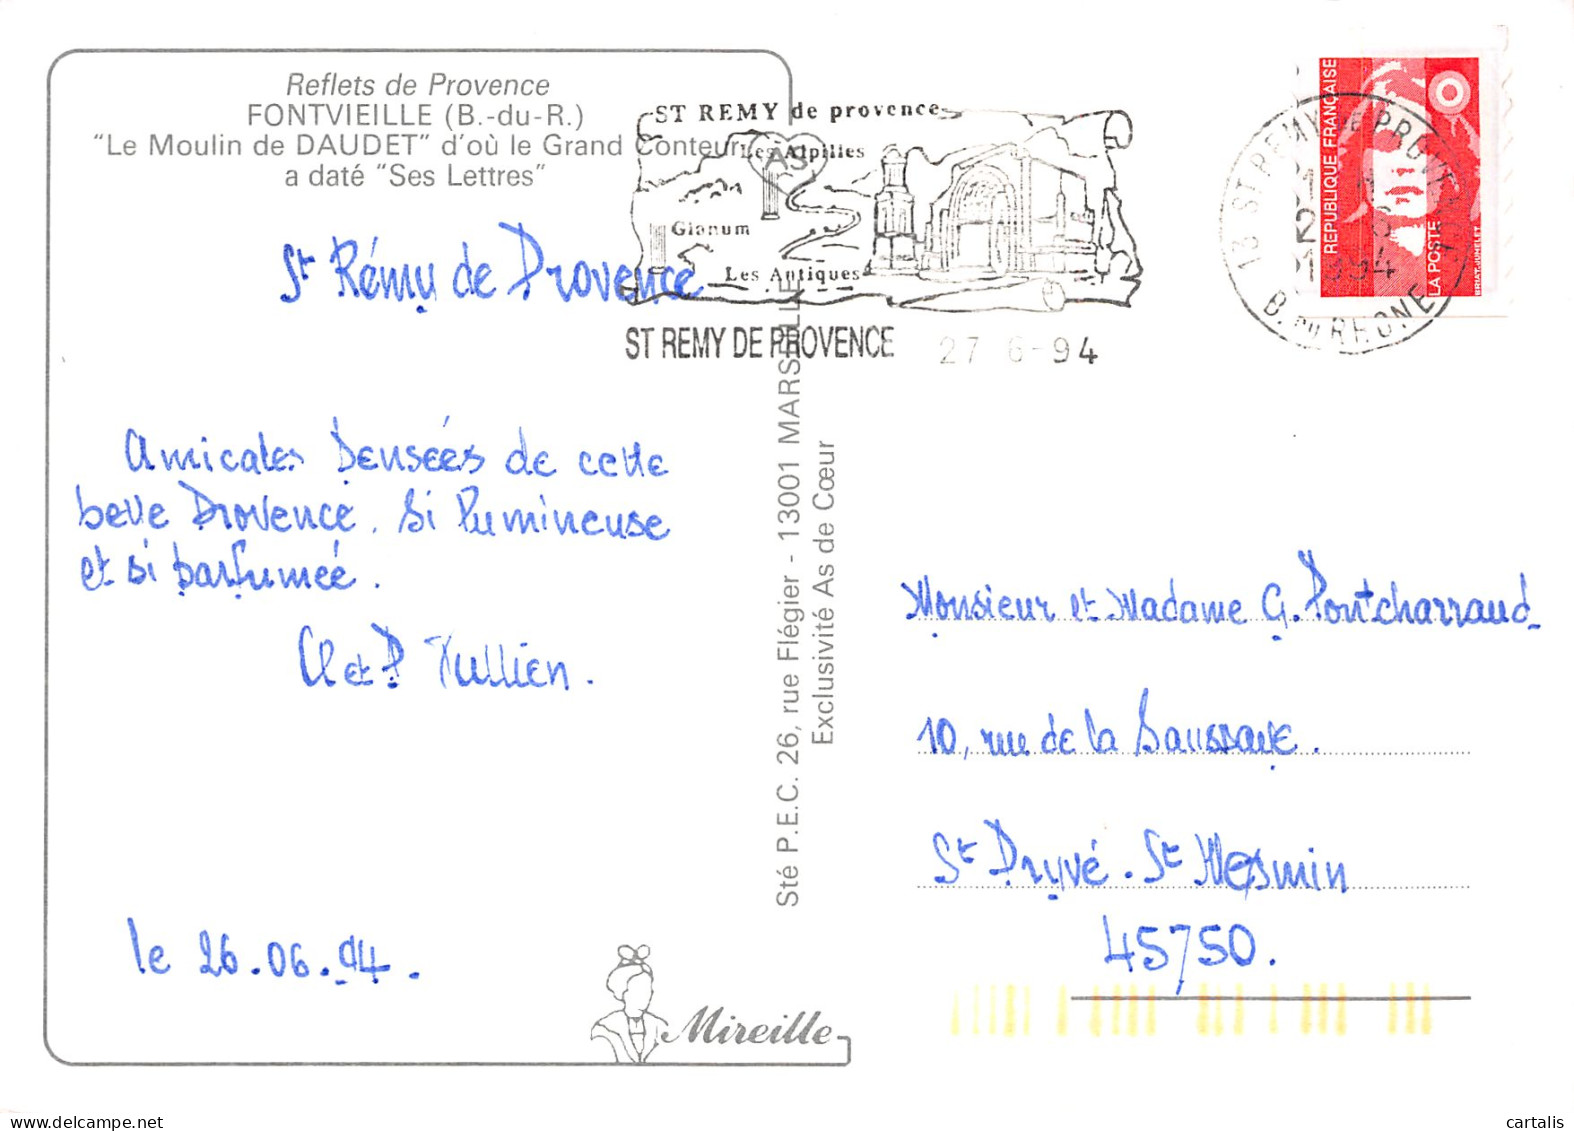 Reflets de Provence
FONTVIEILLE (B.-du-R.)
"Le Moulin de DAUDET" d'où le Grand Conteur
a daté "Ses Lettres"
St Rémy de Provence
Amicales Pensées de cette
belle Provence. Si lumineuse
et si parfumée.
Cl et P Jullien.
le 26.06.94.
Mireille
Sté P.E.C. 26, rue Flégier - 13001 MARSEILLE
Exclusivité As de Cœur
AS
ST REMY de provence
Les Alpilles
Glanum
Les Antiques
ST REMY DE PROVENCE 27 6-94
13 ST REMY DE PROVENCE
B. DU RHONE
1994
REPUBLIQUE FRANÇAISE
LA POSTE
BRIAT-JUMELET
Monsieur et Madame G. Pontcharraud
10, rue de la Saussaye.
St Pryvé. St Mesmin
45750.
cartalis
delcampe.net